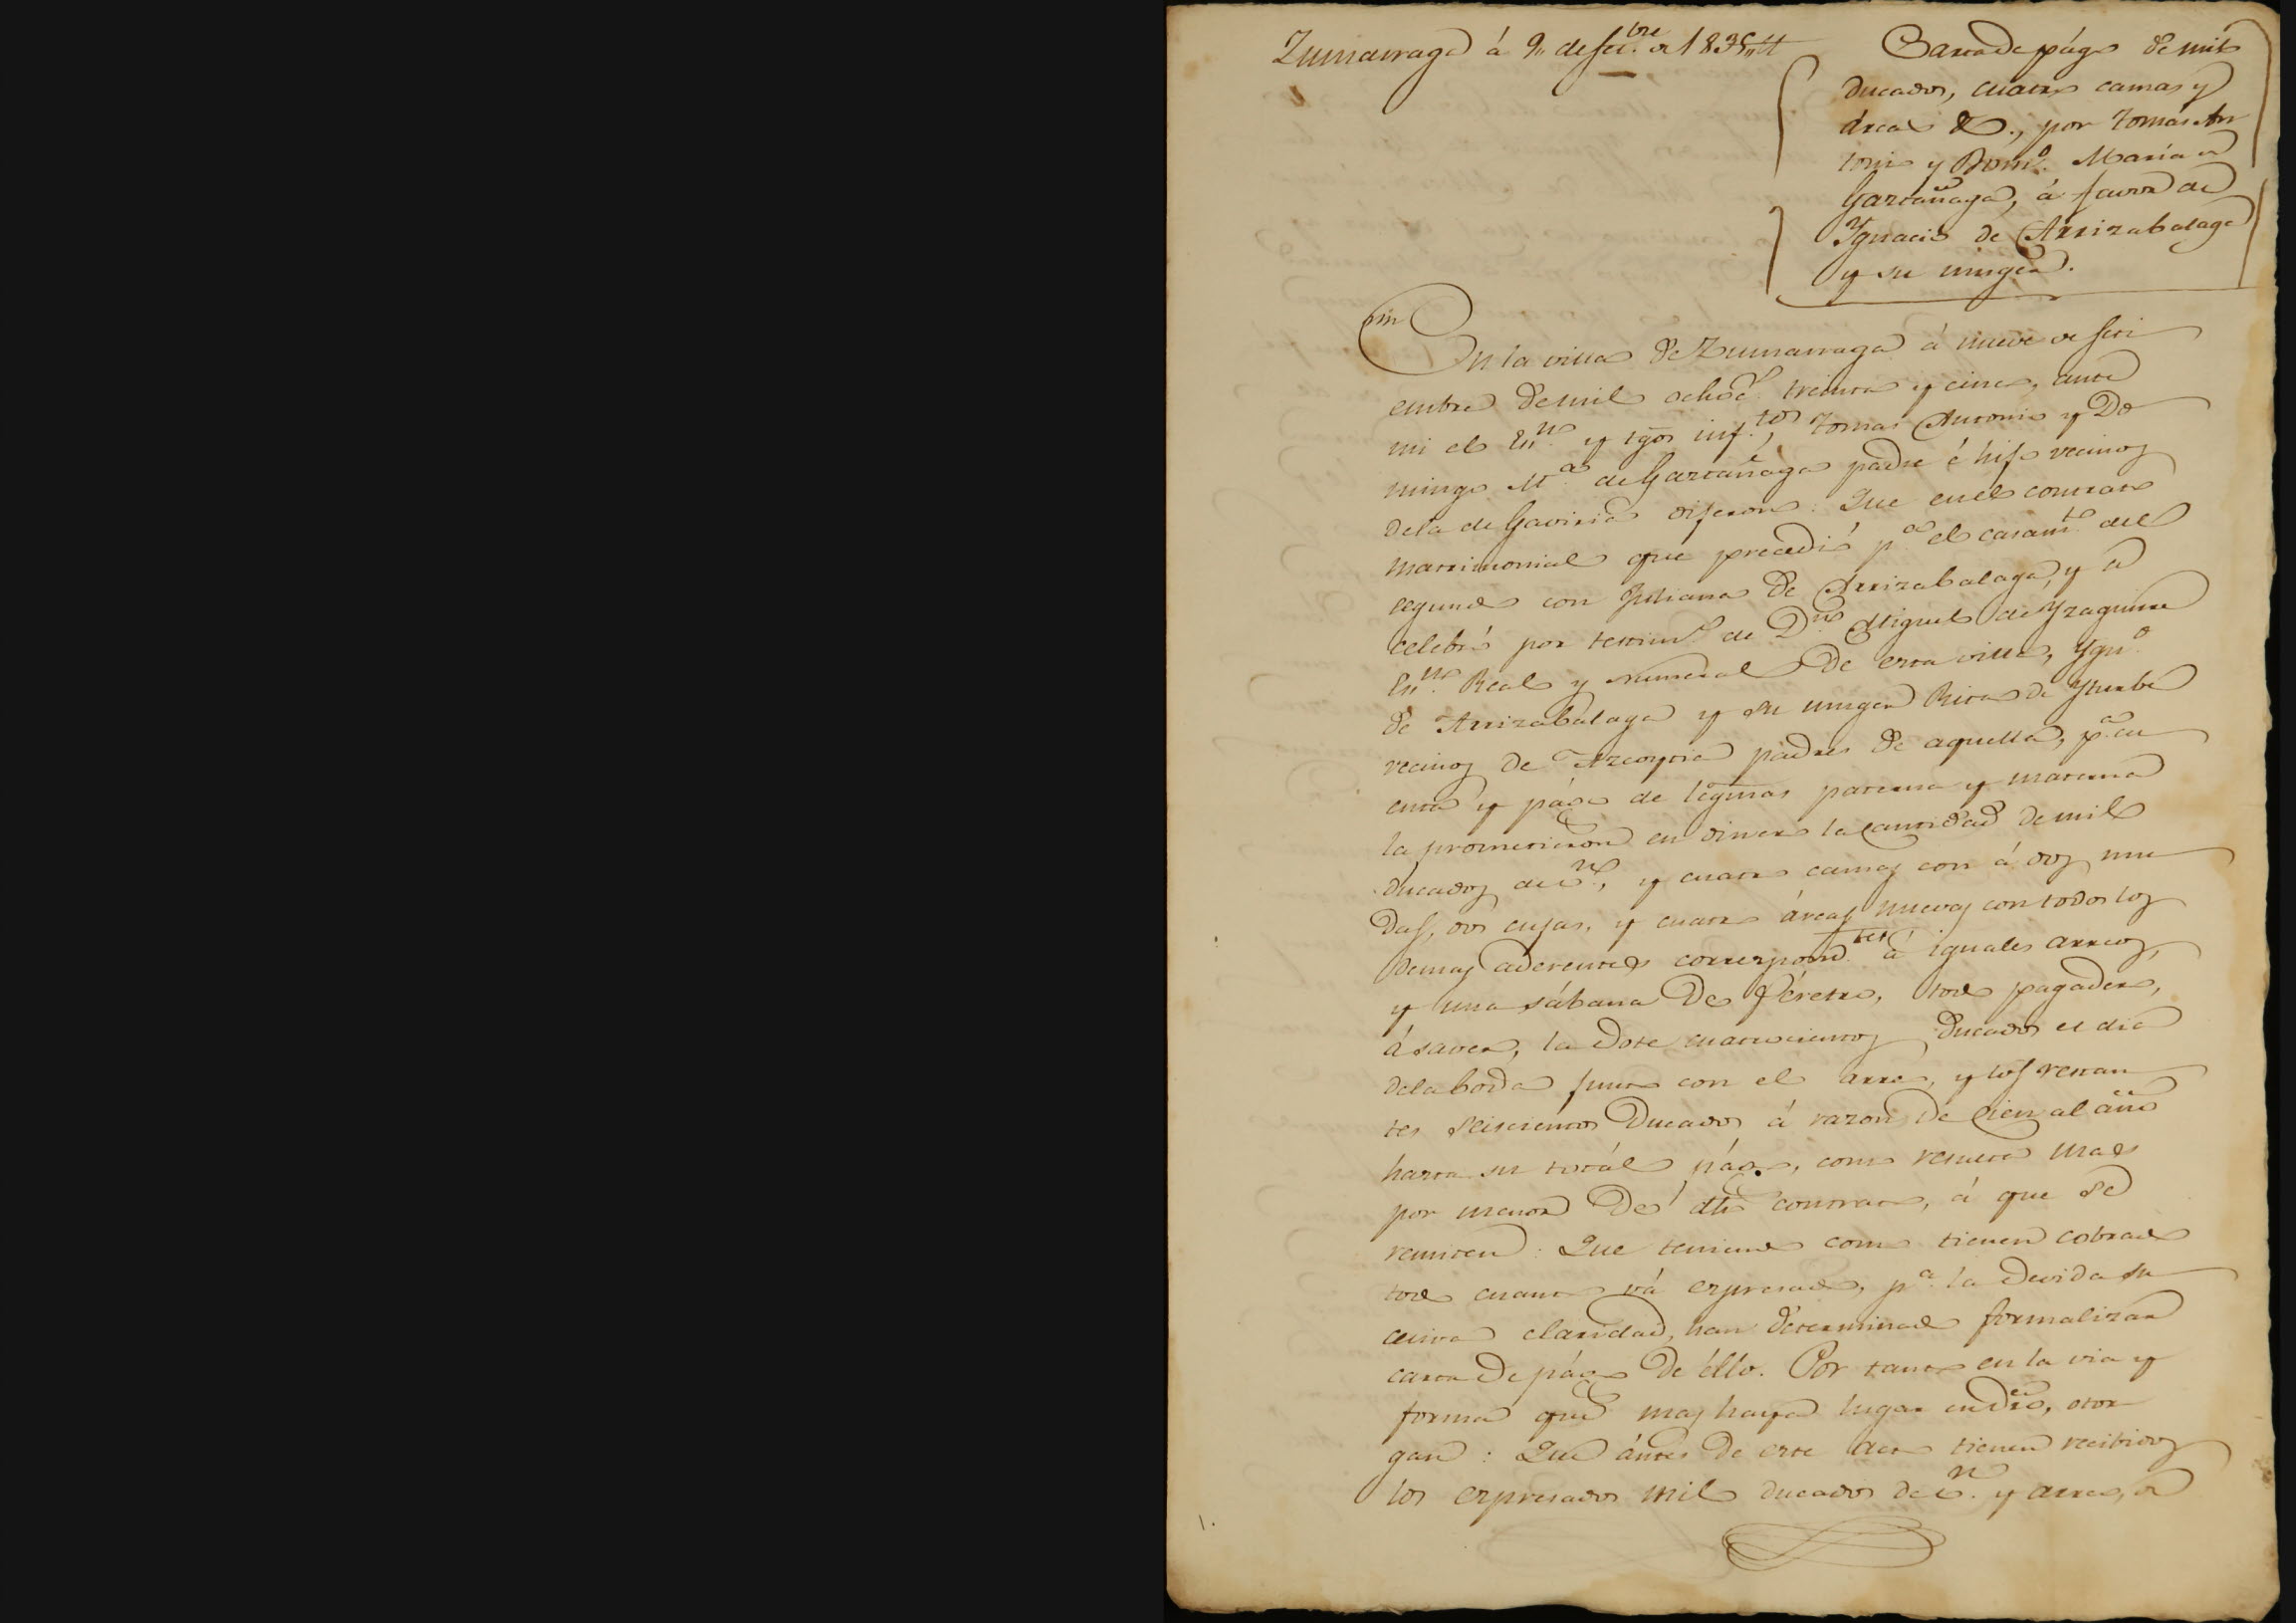 Zumarraga á 9,, de Set.bre de 1835,,
Carta de págo de mil
ducados, cuatro camas y
árcas &., por Tomás An
tonio y Dom.o María de
Gartañaga, á favor de
Ygnacio de Arrizabalaga
y su muger.
En la villa de Zumarraga á nueve de Seti
embre de mil ochoc.s treinta y cinco, ante
mi el Es.no y tgos inf.tos, Tomas Antonio y Do
mingo M.a de Gartañaga padre é hijo vecinos
de la de Gaviria dijeron: Que en el contrato
matrimonial que precedió p.a el casam.to del
segundo con Juliana de Arrizabalaga, y se
celebró por testim.o de D.n Miguel de Yzaguirre
Es.no Real y numeral de esta villa, Ygn.o
de Arrizabalaga y su muger Rita de Yturbe
vecinos de Azcoytia padres de aquella, p.a cu
enta y págo de legmas paterna y materna
la prometieron en dinero la cantidad de mil
ducados de v.n, y cuatro camas con á dos mu
das, dos cujas, y cuatro árcas nuevas con todos los
demas aderentes correspond.tes á iguales arreos,
y una sábana de Féretro, todo pagadero,
á saver, la dote cuatrocientos ducados el dia
de la boda junto con el arreo, y los restan
tes seiscientos Ducados á razon de cien al año
hasta su totál págo, como resulta mas
por menor de dho contrato, á que se
remiten: Que teniendo como tienen cobrado
todo cuanto vá expresado, p.a la devida su
cesiva claridad, han determinado formalizar
carta de págo de éllo. Por tanto en la via y
forma que mas haya lugar en dro, otor
gan: Que ántes de este acto tienen recibidos
los expresados mil ducados de v.n y arreo, de